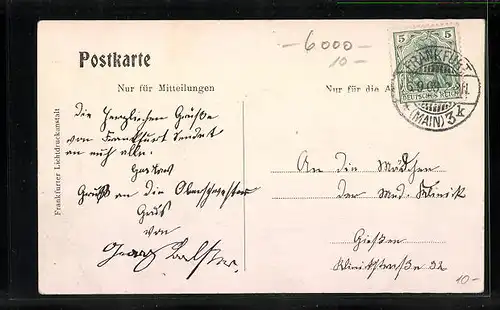 Postkarte
- 6000 -
10 -
5
DEUTSCHES REICH
FRANKFURT
(MAIN) 3
Nur für Mitteilungen
Nur für die
Frankfurter Lichtdruckanstalt
Die herzlichen Grüße
von Frankfurt sendet
an euch alle.
Gustav
Gruß an die Oberschwester
Gruß
von
An die Mädchen
der Med. Klinik
Gießen
Klinikstraße 32
10 -